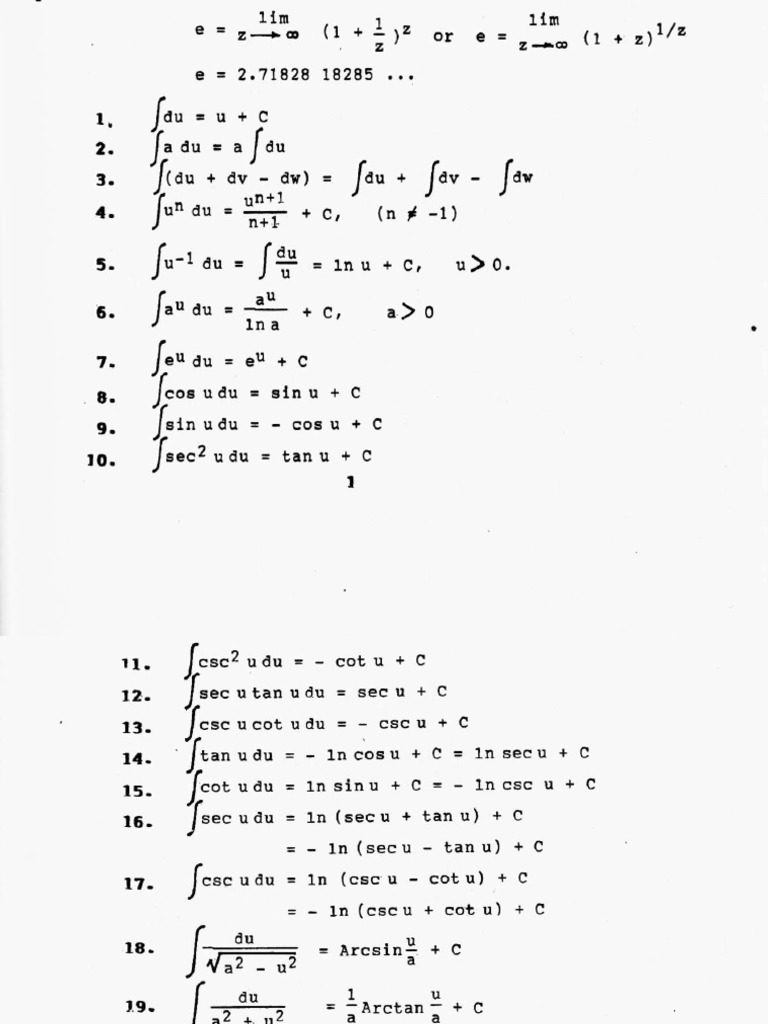 e = lim z→∞ (1 + 1/z)^z or e = lim z→∞ (1 + z)^1/z
e = 2.71828 18285 ...
1. ∫du = u + C
2. ∫a du = a ∫du
3. ∫(du + dv - dw) = ∫du + ∫dv - ∫dw
4. ∫u^n du = u^n+1/n+1 + C, (n ≠ -1)
5. ∫u^-1 du = ∫du/u = ln u + C, u > 0.
6. ∫a^u du = a^u/ln a + C, a > 0
7. ∫e^u du = e^u + C
8. ∫cos u du = sin u + C
9. ∫sin u du = - cos u + C
10. ∫sec² u du = tan u + C
1
11. ∫csc² u du = - cot u + C
12. ∫sec u tan u du = sec u + C
13. ∫csc u cot u du = - csc u + C
14. ∫tan u du = - ln cos u + C = ln sec u + C
15. ∫cot u du = ln sin u + C = - ln csc u + C
16. ∫sec u du = ln (sec u + tan u) + C
= - ln (sec u - tan u) + C
17. ∫csc u du = ln (csc u - cot u) + C
= - ln (csc u + cot u) + C
18. ∫du/√(a² - u²) = Arcsin u/a + C
19. ∫du/a² + u² = 1/a Arctan u/a + C